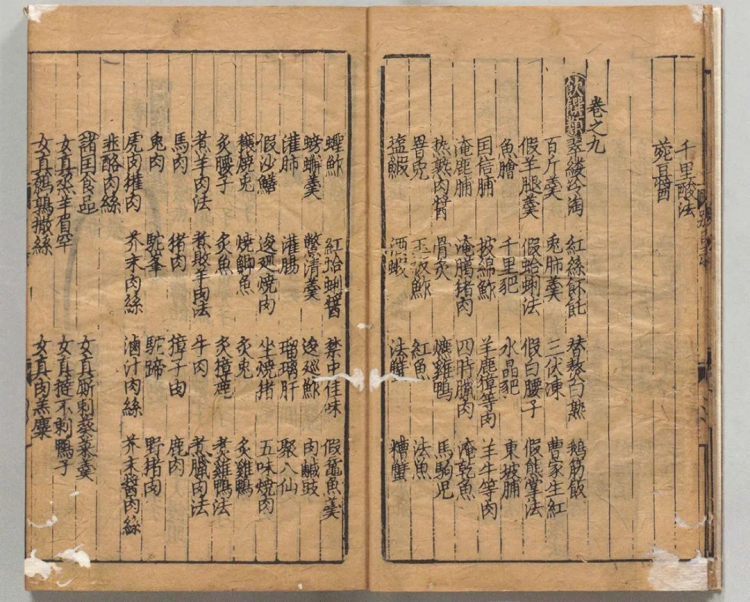 千里酸法
豌荳醬
卷之九
飲饌類 翠縷冷淘 紅絲餺飥 勻熟 鵝筋飯
百斤羹 兔肺羹 三伏凍 曹家生紅
假羊腿羹 假蛤蜊法 假白腰子 假熊掌法
魚膾 千里豝 水晶豝 東坡脯
国信脯 披綿鮓 羊鹿獐等肉 羊牛等肉
淹鹿脯 淹臈猪肉 四時臘肉 淹乾魚
熟肉醬 骨炙 爊雞鴨 馬駒児
罨兎 玉版鮓 紅魚 法魚
塩鰕 酒蝦 法蟹 糟蟹
蟶鮓 紅蛤蜊醬 禁中佳味 假黿魚羹
螃蟹羹 鱉清羹 逡廵鮓 肉鹹豉
灌肺 灌腸 瑠璃肝 聚八仙
假沙鱔 逡廵燒肉 坐燒猪 五味燒肉
穰燒兎 燒鯽魚 炙兎 炙雞鴨
炙腰子 炙魚 炙獐鹿 煮雞鴨法
煮羊肉法 煮敗羊肉法 牛肉 煮臈肉法
馬肉 猪肉 獐子肉 鹿肉
兔肉 駝峯 駝蹄 野猪肉
虎肉獾肉 芥末肉絲 滷汁肉絲 芥末醬肉絲
韭酪肉絲
諸国食品 女真厮剌葵菜羹
女真蒸羊眉罕 女真撻不剌鴨子
女真鵪鶉撒絲 女真肉羔糜